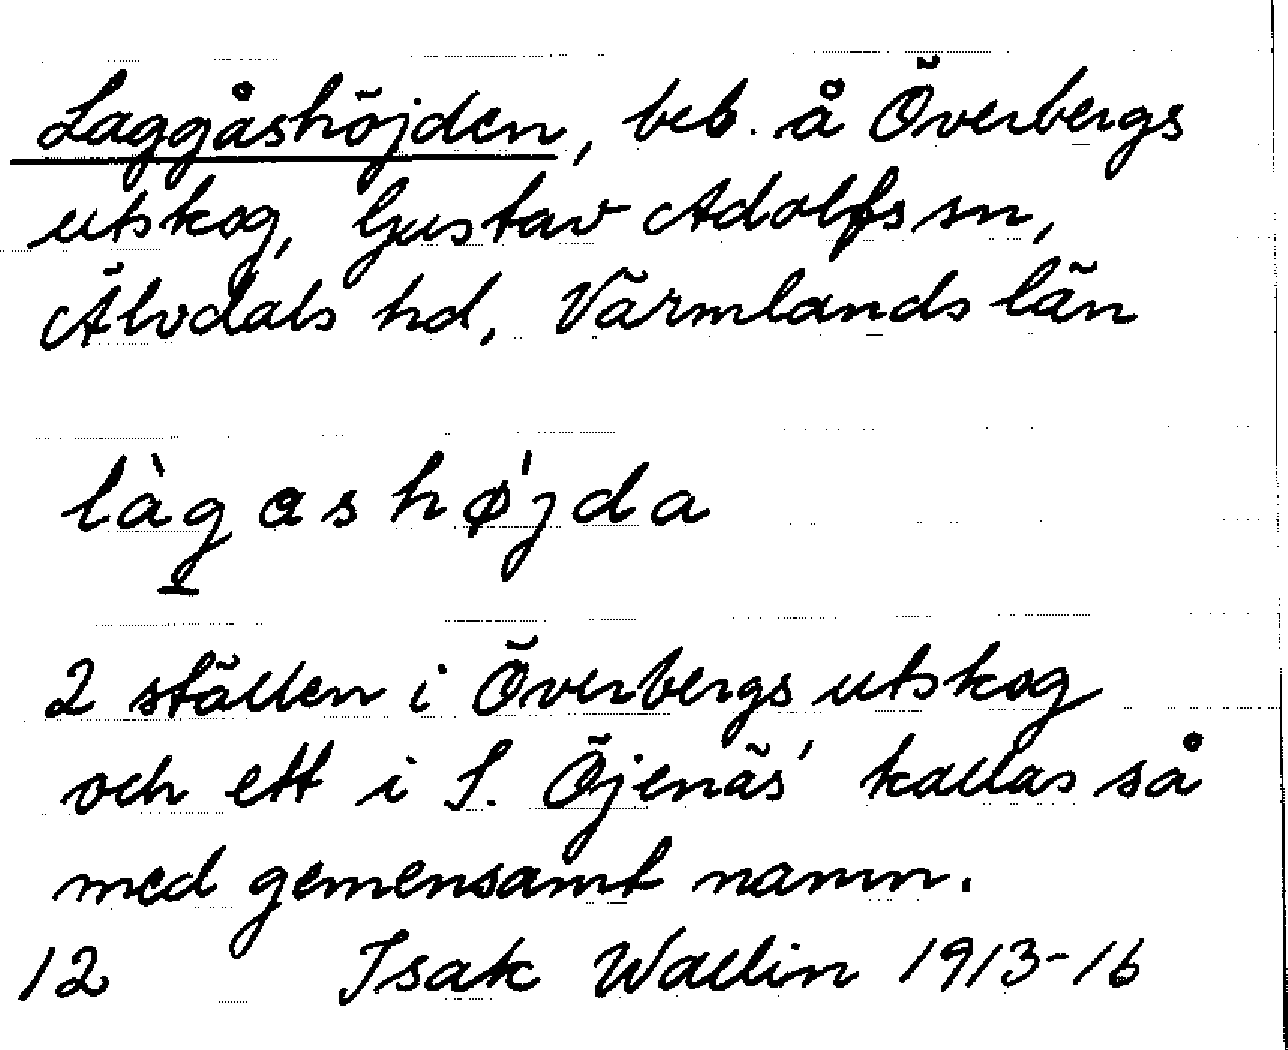 Laggåshöjden, beb. å Överbergs
utskog, Gustav Adolfs sn,
Älvdals hd, Värmlands län
làgashø̍jda
2 ställen i Överbergs utskog
och ett i S. Öjenäs' kallas så
med gemensamt namn.
12 Isak Wallin 1913-16